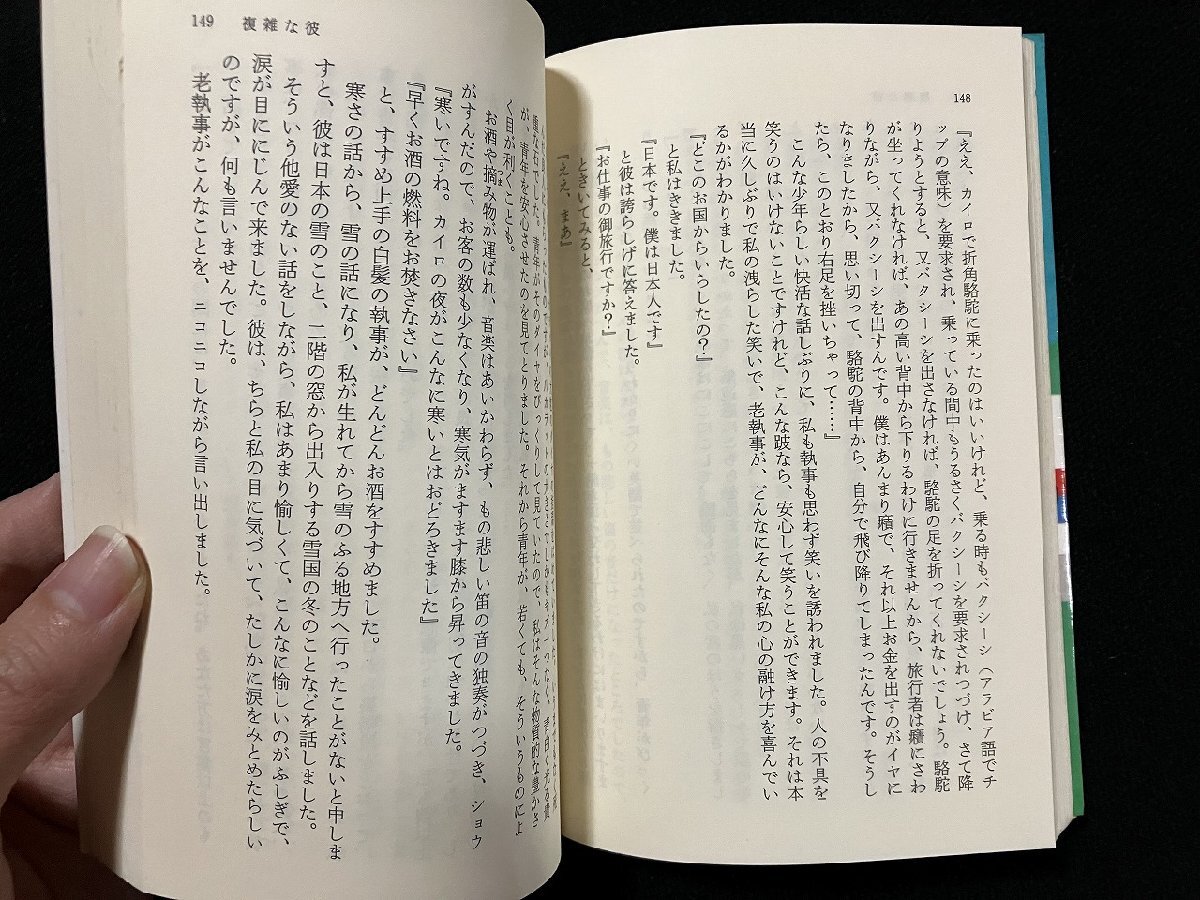 148
『ええ、カイロで折角駱駝に乗ったのはいいけれど、乗る時もバクシーシ(アラビア語でチ
ップの意味)を要求され、乗っている間中もうるさくバクシーシを要求されつづけ、さて降
りようとすると、又バクシーシを出さなければ、駱駝の足を折ってくれないでしょう。駱駝
が坐ってくれなければ、あの高い背中から下りるわけに行きませんから、旅行者は癪にさわ
りながら、又バクシーシを出すんです。僕はあんまり癪で、それ以上お金を出すのがイヤに
なりましたから、思い切って、駱駝の背中から、自分で飛び降りてしまったんです。そうし
たら、このとおり右足を挫いちゃって……』
こんな少年らしい快活な話しぶりに、私も執事も思わず笑いを誘われました。人の不具を
笑うのはいけないことですけれど、こんな跛なら、安心して笑うことができます。それは本
当に久しぶりで私の洩らした笑いで、老執事が、どんなにそんな私の心の融け方を喜んでい
るかがわかりました。
『どこのお国からいらしたの?』
と私はききました。
『日本です。僕は日本人です』
と彼は誇らしげに答えました。
『お仕事の御旅行ですか?』
ときいてみると、
『ええ、まあ』
149 複雑な彼
重な石でした。青年がそのダイヤをびっくりして見ていたので、私はそんな物質的な豊かさ
が、青年を安心させたのを見てとりました。それから青年が、若くても、そういうものによ
く目が利くことも。
お酒や摘み物が運ばれ、音楽はあいかわらず、もの悲しい笛の音の独奏がつづき、ショウ
がすんだので、お客の数も少なくなり、寒気がますます膝から昇ってきました。
『寒いですね。カイロの夜がこんなに寒いとはおどろきました』
『早くお酒の燃料をお焚きなさい』
と、すすめ上手の白髪の執事が、どんどんお酒をすすめました。
寒さの話から、雪の話になり、私が生れてから雪のふる地方へ行ったことがないと申しま
すと、彼は日本の雪のこと、二階の窓から出入りする雪国の冬のことなどを話しました。
そういう他愛のない話をしながら、私はあまり愉しくて、こんなに愉しいのがふしぎで、
涙が目ににじんで来ました。彼は、ちらと私の目に気づいて、たしかに涙をみとめたらしい
のですが、何も言いませんでした。
老執事がこんなことを、ニコニコしながら言い出しました。